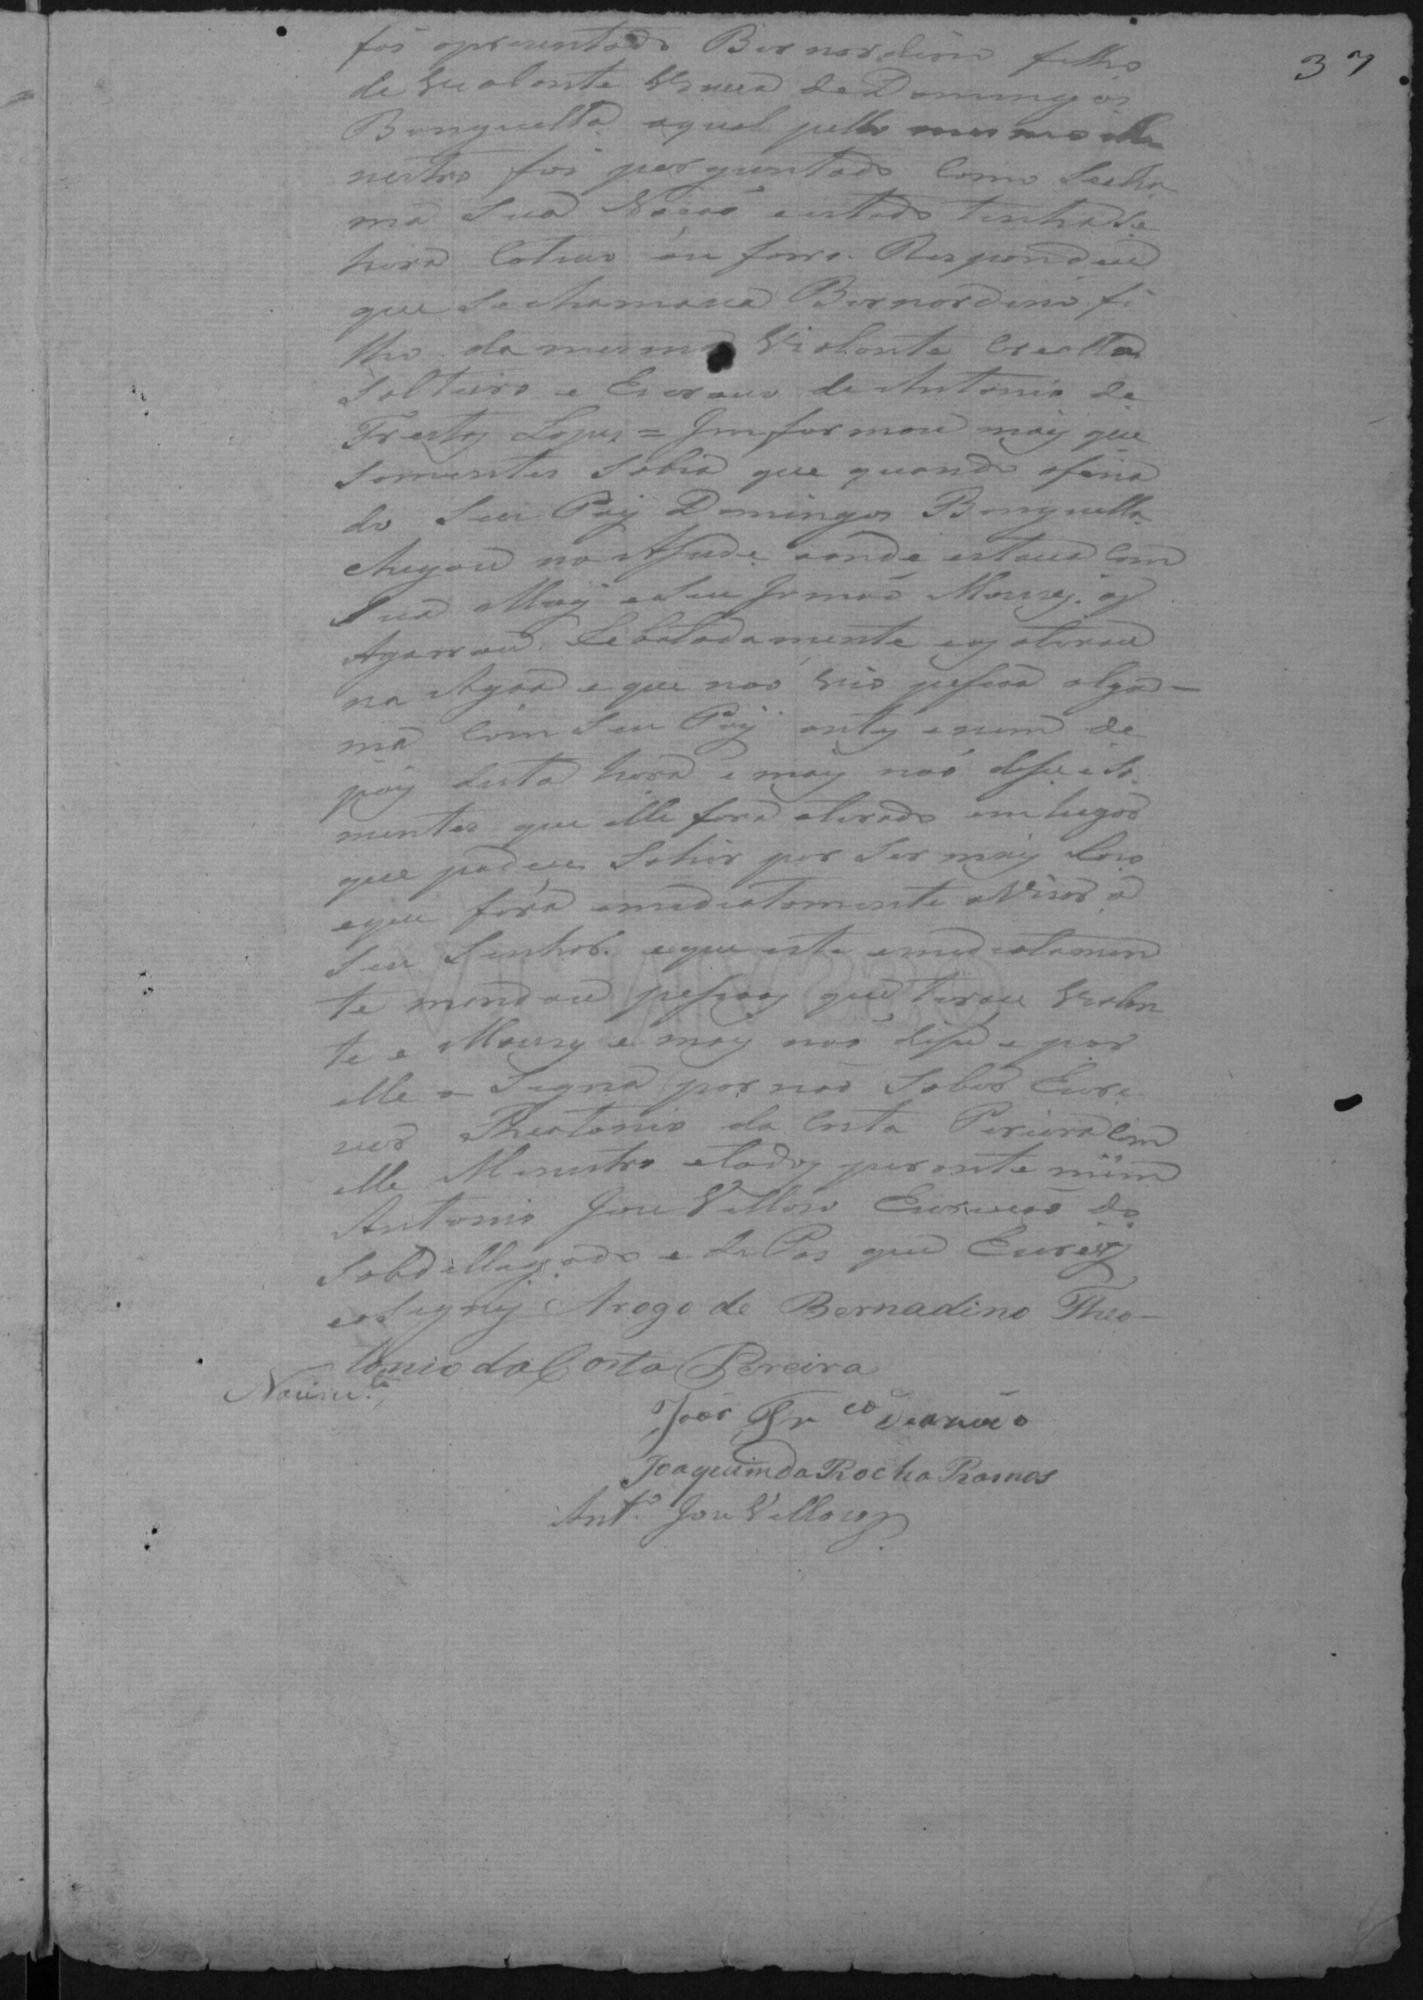 37
foi aprezentado Bernardino filho
de Violante viuva de Domingos
Banguella aqual pello mesmo Me
nistro foi perguntado Como Secha
ma Sua Naçaõ estado Senhor Se
hera Cativo óu forro. Respondeu
que Sechamava Bernardino fi
lho da mesma Violante Creolla
Solteiro e Escravo de Antonio de
Freitas Lopes = Jmformou mais que
Somentes Sabia que quando ofina
do Seu Pay Domingos Banguella
chegou no Asude aonde estava Com
Sua May e Seu Jrmaõ Moises. os
Agarrou e os atirou
na Agoa e que naõ viu pessoa algu-
ma Com Seu Pay antes e nem de
pois desta hora e mais naõ disse e So
mentes que elle fora atirado em lugar
que pode Sahir por Ser mais
e que fora emediatamente aVizar a
Seu Senhor. e que este emediatamen
te mandou pessoas que tirou Violan
te e Moises e mais naõ disse e por
elle a Signa por naõ Saber Escre
ver Theotonio da Costa Pereira Com
elle Menistro e todos perante mim
Antonio Joze Vellozo Escrivaõ do
Sobdellegado e de Paz que Escrevy
e aSigney Arogo de Bernadino Theo-
tonio da Costa Pereira
Joaõ Fr.co
Joaquim da Rocha Ramos
Ant.o Joze Vellozo